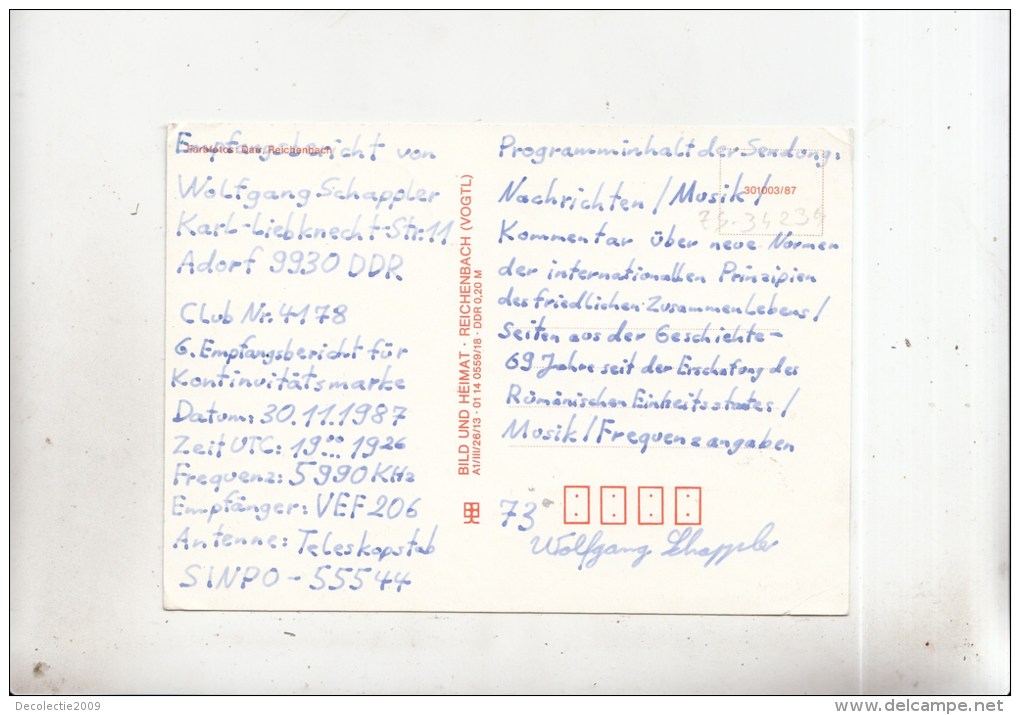 Empfangsbericht von
Wolfgang Schappler
Karl-Liebknecht-Str. 11
Adorf 9930 DDR
Club Nr. 4178
6. Empfangsbericht für
Kontinuitätsmarke
Datum: 30.11.1987
Zeit UTC: 1900... 1926
Frequenz: 5990 KHz
Empfänger: VEF 206
Antenne: Teleskopstab
SINPO - 55544
Reichenbach
BILD UND HEIMAT · REICHENBACH (VOGTL)
A1/III/26/13 · 01 14 0559/18 · DDR 0,20 M
Programminhalt der Sendung:
301003/87
Nachrichten / Musik /
Kommentar über neue Normen
der internationallen Prinzipien
des friedlichen Zusammenlebens /
Seiten aus der Geschichte -
69 Jahre seit der Erschafung des
Rümänischen Einheitsstaates /
Musik / Frequenzangaben
73
Wolfgang Schappler
Decolectie2009
delcampe.net